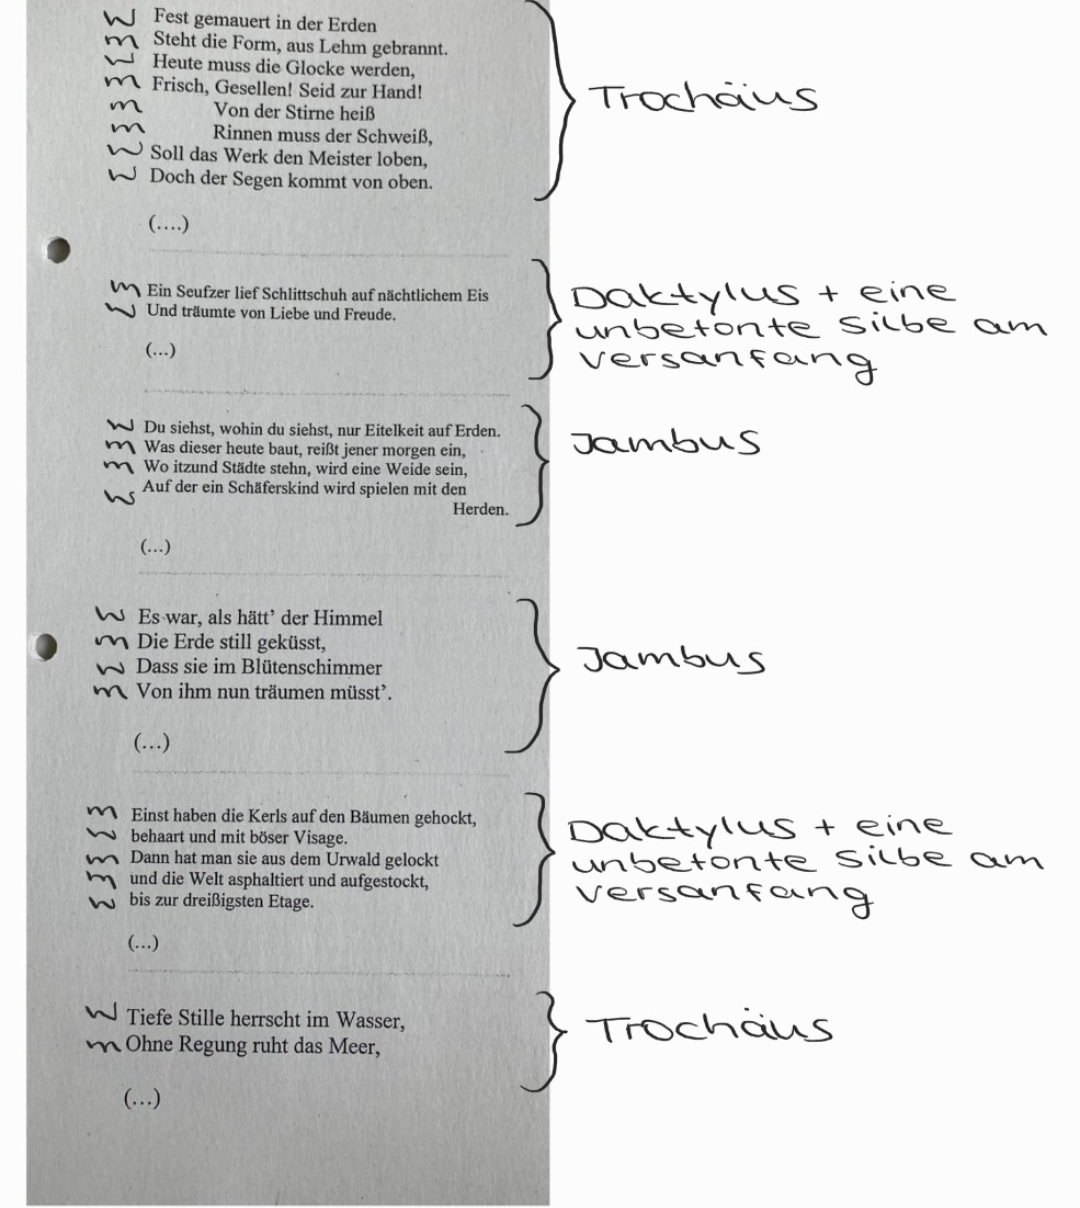 w Fest gemauert in der Erden
m Steht die Form, aus Lehm gebrannt.
w Heute muss die Glocke werden,
m Frisch, Gesellen! Seid zur Hand!
m Von der Stirne heiß
m Rinnen muss der Schweiß,
w Soll das Werk den Meister loben,
w Doch der Segen kommt von oben.
Trochäus
(....)
m Ein Seufzer lief Schlittschuh auf nächtlichem Eis
w Und träumte von Liebe und Freude.
Daktylus + eine
unbetonte Silbe am
Versanfang
(...)
w Du siehst, wohin du siehst, nur Eitelkeit auf Erden.
m Was dieser heute baut, reißt jener morgen ein,
m Wo itzund Städte stehn, wird eine Weide sein,
w Auf der ein Schäferskind wird spielen mit den
Herden.
Jambus
(...)
w Es war, als hätt’ der Himmel
m Die Erde still geküsst,
w Dass sie im Blütenschimmer
m Von ihm nun träumen müsst’.
Jambus
(...)
m Einst haben die Kerls auf den Bäumen gehockt,
w behaart und mit böser Visage.
m Dann hat man sie aus dem Urwald gelockt
m und die Welt asphaltiert und aufgestockt,
w bis zur dreißigsten Etage.
Daktylus + eine
unbetonte Silbe am
Versanfang
(...)
w Tiefe Stille herrscht im Wasser,
m Ohne Regung ruht das Meer,
Trochäus
(...)